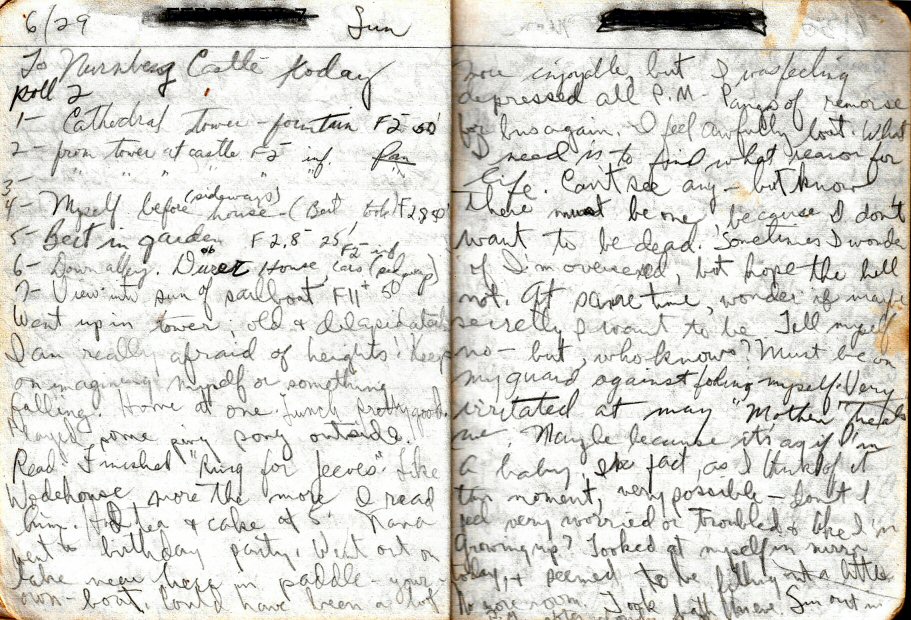 6/29 Sun
To Nurnberg Castle today
Roll 2
1- Cathedral tower - fountain F2 50'
2- from tower at castle F2 inf.
3- " " " " "
4- Myself before (sideways) house - (Bert took) F2,8
5- Bert in garden F 2,8 25'
6- Down alley. Dürer House, F2 inf
7- View into sun of sailboat F11+ 50'
Went up in tower; old & dilapidated
I am really afraid of heights! Keep
on imagining myself or something
falling! Home at one. Lunch pretty good.
Played some ping pong outside.
Read. Finished "Ring for Jeeves". Like
Wodehouse more the more I read
him. Had tea & cake at 5. Nana
went to birthday party. Went out on
lake near here in paddle-your-
own-boat. Could have been a lot
more enjoyable, but I was feeling
depressed all P.M. - Pangs of remorse
for again. I feel awfully lost. What
I need is to find what reason for
life. Can't see any - but know
there must be one because I don't
want to be dead. Sometimes I wonder
if I'm oversexed, but hope the hell
not. At same time, wonder if maybe
secretly I want to be. Tell myself
no - but, who knows? Must be on
my guard against fooling myself. Very
irritated at way "Mother" treats
me. Maybe because it's as if I'm
a baby, in fact, as I think of it
this moment, very possible - don't I
feel very worried or troubled & like I'm
growing up? Looked at myself in mirror
today, & seemed to be filling out a little
to more room. Took bath I have. Sun out in